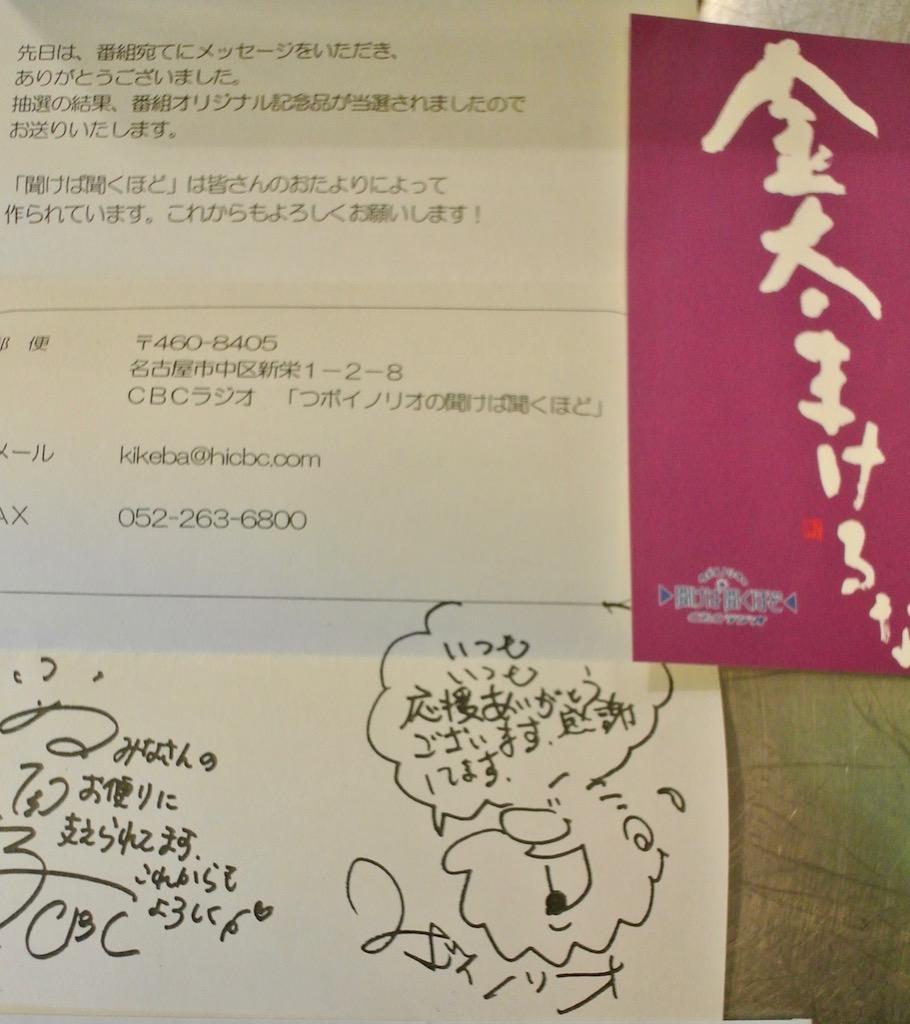 先日は、番組宛てにメッセージをいただき、
ありがとうございました。
抽選の結果、番組オリジナル記念品が当選されましたので
お送りいたします。
「聞けば聞くほど」は皆さんのおたよりによって
作られています。これからもよろしくお願いします！
便
〒460-8405
名古屋市中区新栄1－2－8
CBCラジオ 「つボイノリオの聞けば聞くほど」
メール
kikeba@hicbc.com
AX
052-263-6800
金太まけるな
聞けば聞くほど
CBCラジオ
いつも
いつも
応援ありがとう
ございます。感謝
してます。
みなさんの
お便りに
支えられてます。
これからも
よろしく
CBC
つボイノリオ